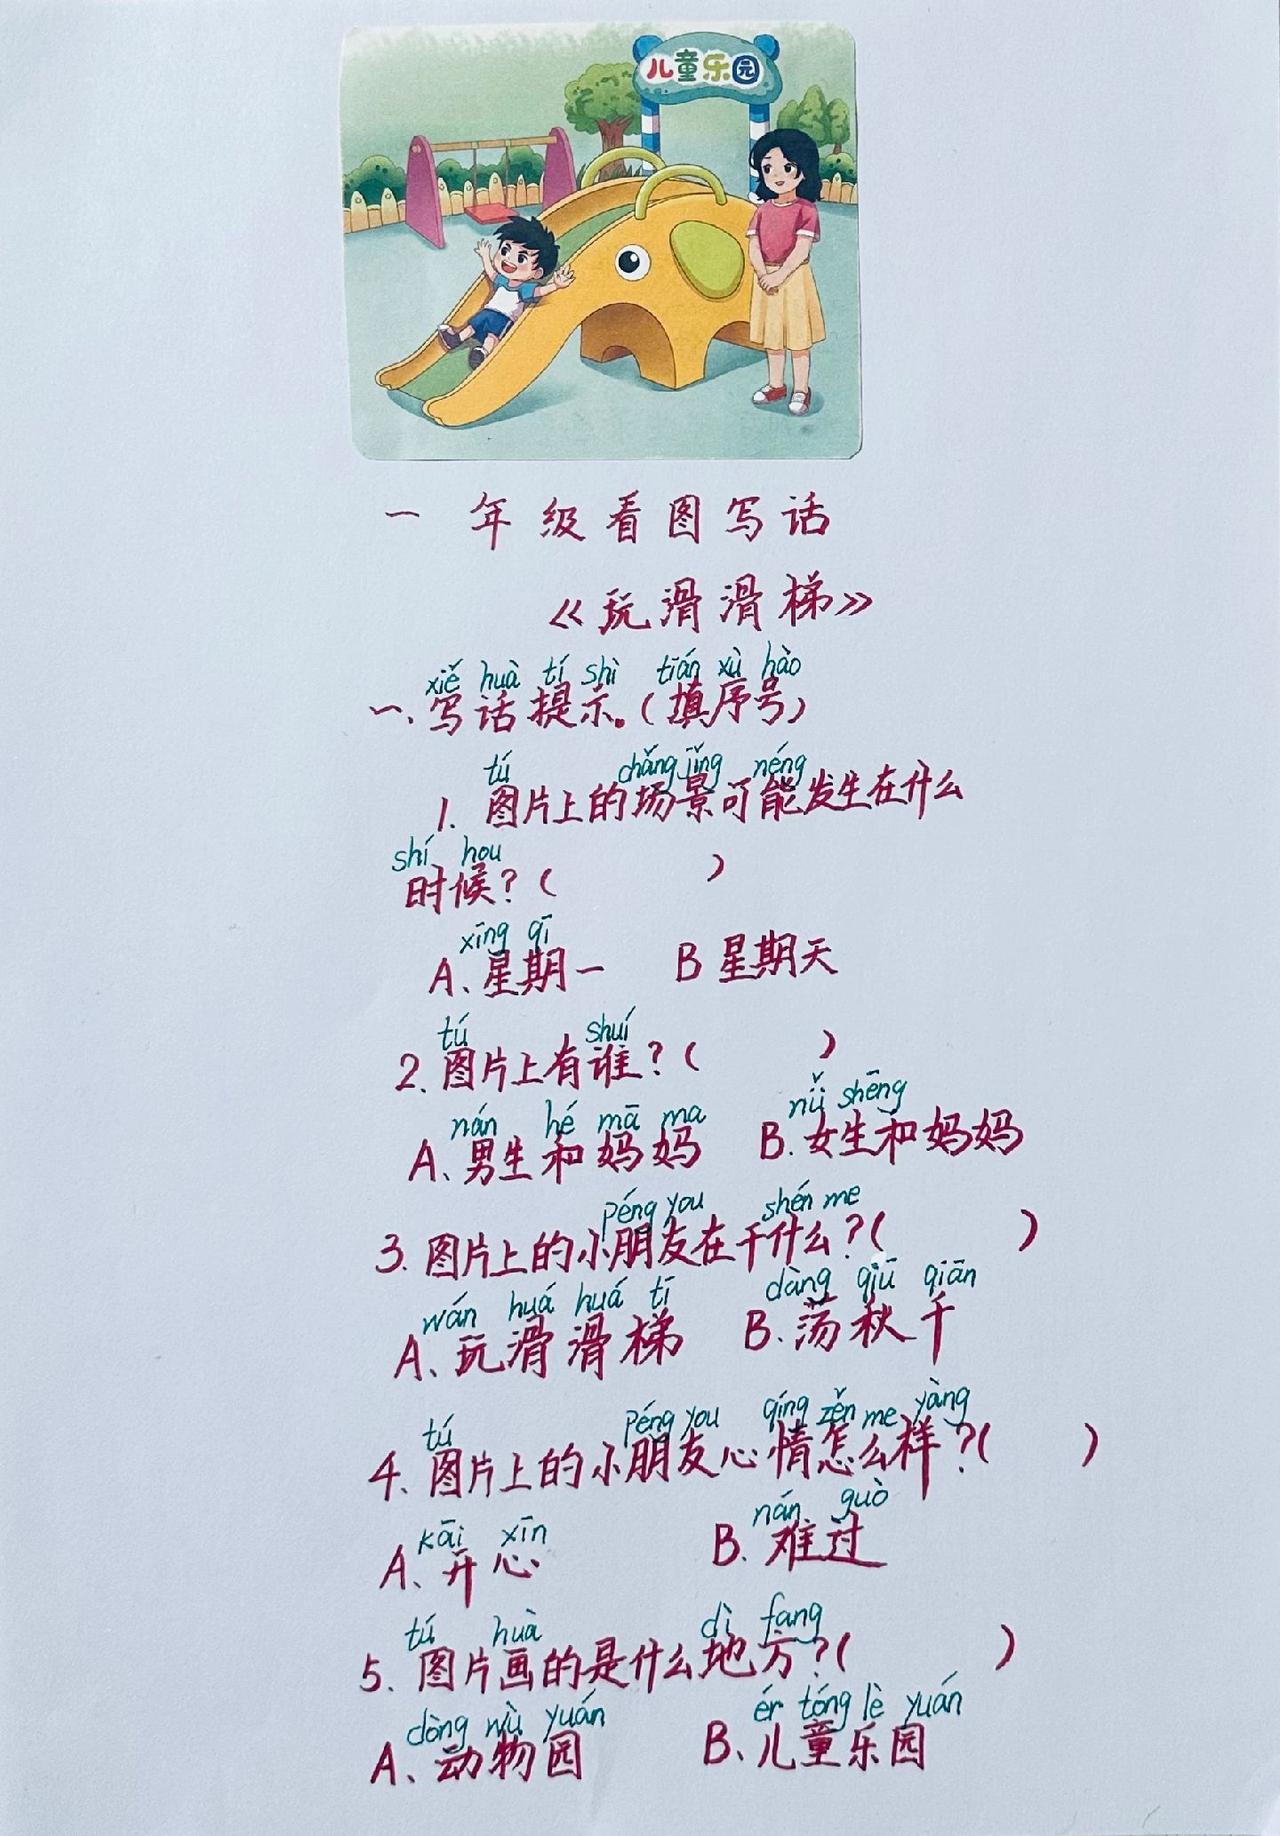 儿童乐园
一年级看图写话
《玩滑滑梯》
xiě huà tí shì tián xù hào
一、写话提示。(填序号)
tú chǎng jǐng néng
1. 图片上的场景可能发生在什么
shí hou
时候?( )
xīng qī
A、星期一 B 星期天
tú shuí
2. 图片上有谁?( )
nán hé mā ma nǚ shēng
A、男生和妈妈 B. 女生和妈妈
péng you shén me
3. 图片上的小朋友在干什么?( )
wán huá huá tī dàng qiū qiān
A、玩滑滑梯 B. 荡秋千
tú péng you qíng zěn me yàng
4. 图片上的小朋友心情怎么样?( )
kāi xīn nán guò
A、开心 B. 难过
tú huà dì fang
5. 图片画的是什么地方?( )
dòng wù yuán ér tóng lè yuán
A、动物园 B、儿童乐园